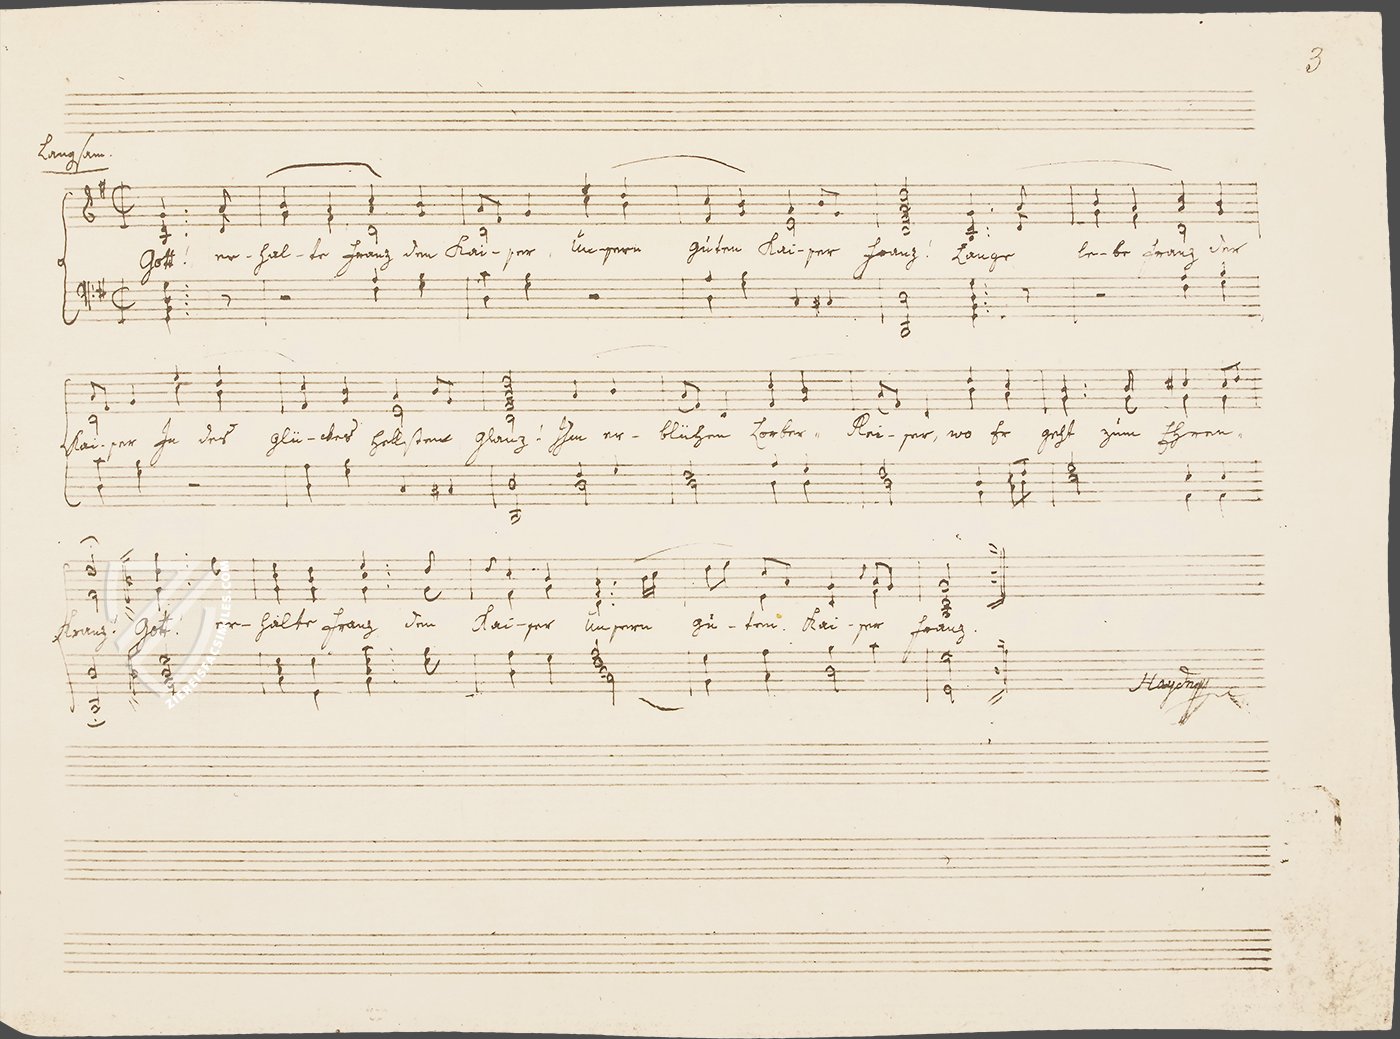 3
Langsam.
Gott! er-hal-te Franz den Kai-ser, Un-sern guten Kai-ser Franz! Lange le-be Franz der
Kai-ser In des Glü-ckes hellstem Glanz! Ihm er-blühen Lorber- Rei-ser, wo Er geht zum Ehren-
Kranz! Gott! er-halte Franz den Kai-ser Unsern gu-ten Kai-ser Franz.
Haydn
ZIEREISFACSIMILES.COM